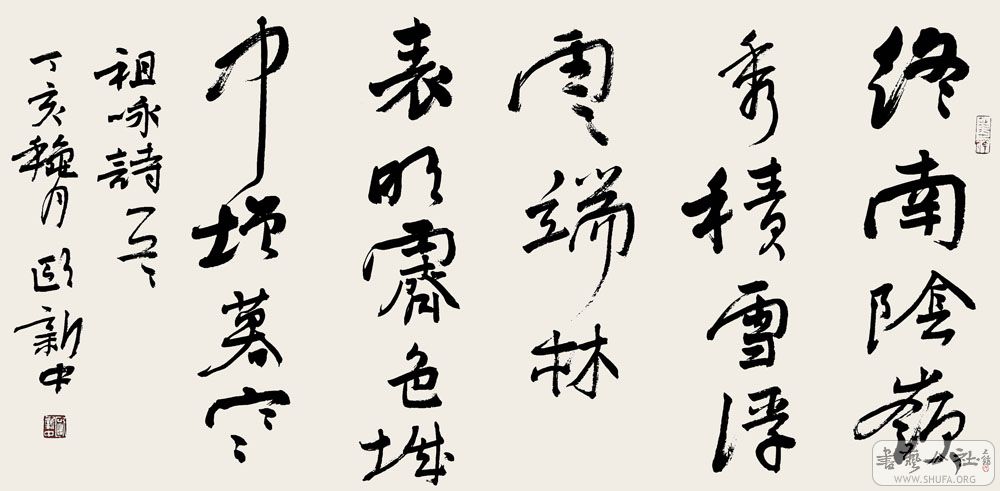 終南陰嶺
秀積雪浮
雲端林
表明霽色城
中增暮寒
祖咏詩一首
丁亥龝月 歐新中
書藝公社
WWW.SHUFA.ORG